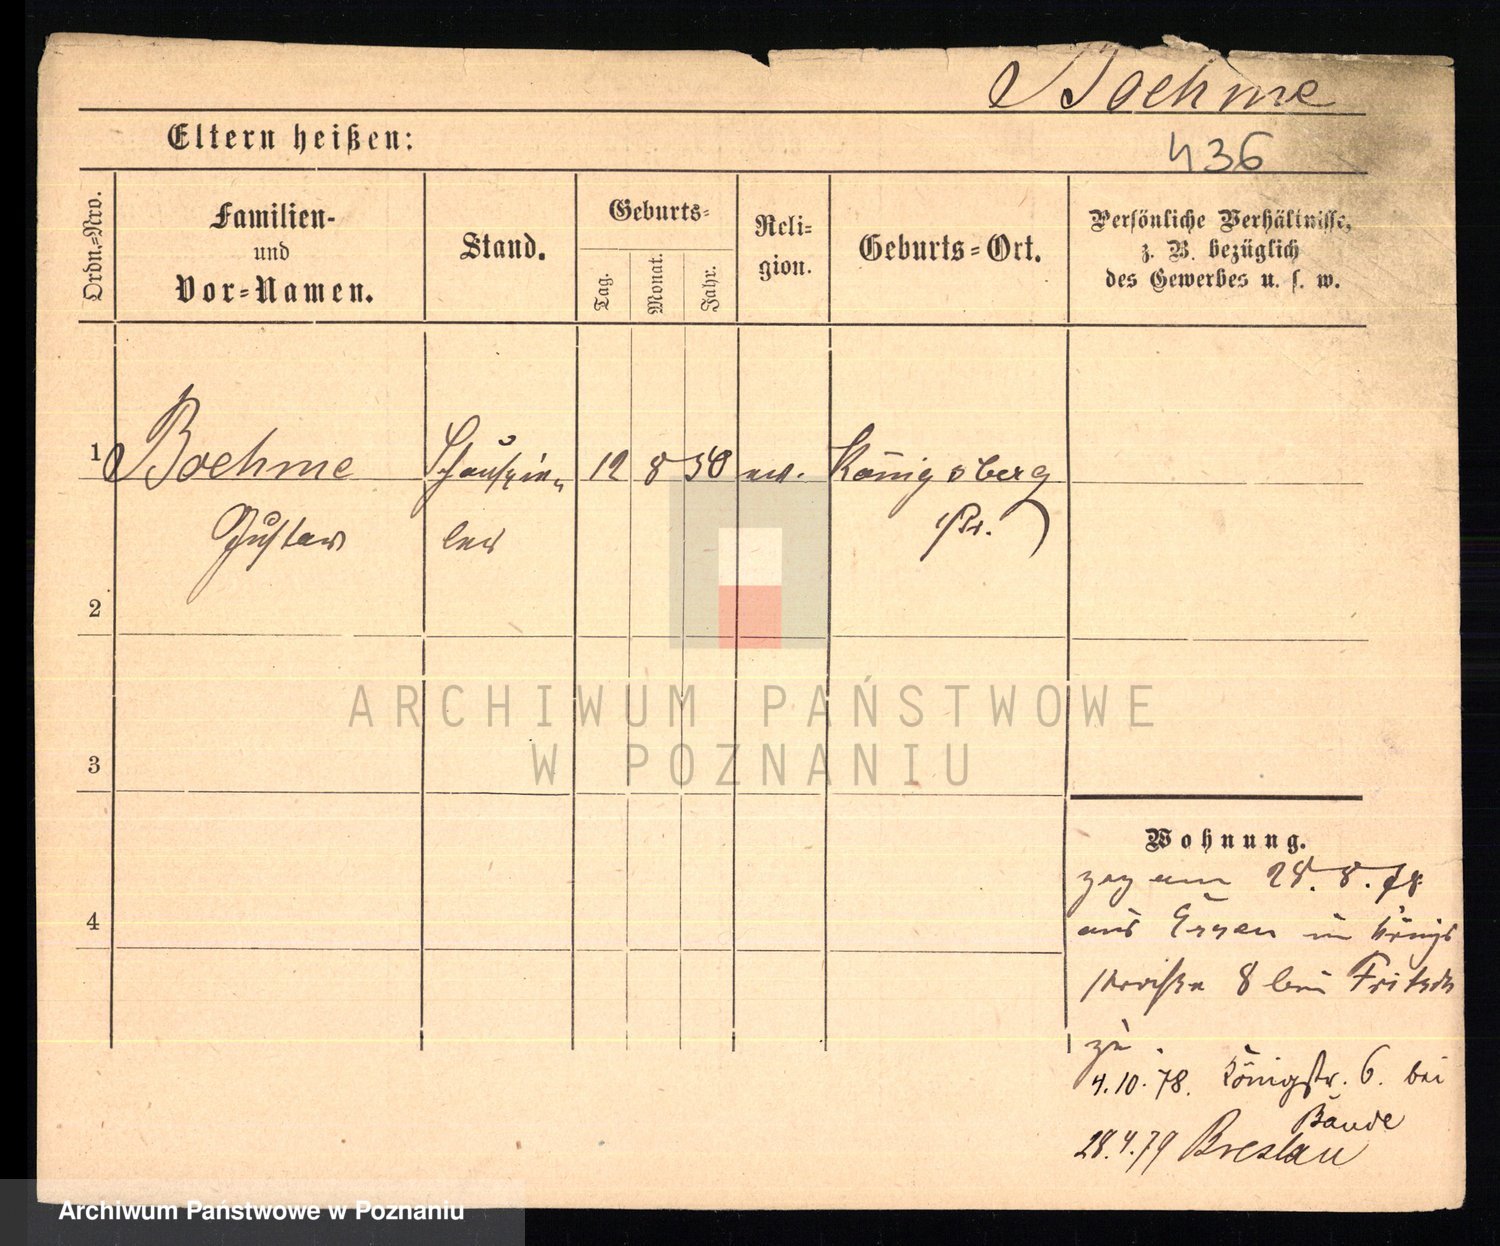 Boehme
436
Eltern heißen:
Ordn.=Nro.
Familien-
und
Vor=Namen.
Stand.
Geburts=
Tag.
Monat.
Jahr.
Reli=
gion.
Geburts=Ort.
Persönliche Verhältnisse,
z. B. bezüglich
des Gewerbes u. s. w.
1
Boehme
Gustav
Schauspie-
ler
12
8
50
ev.
Königsberg
i/Pr.)
2
3
4
ARCHIWUM PAŃSTWOWE
W POZNANIU
Wohnung.
zog am 28. 8. 78
aus Essen in Königs
straße 8 bei Fritsch
zu.
4.10.78. Königstr. 6. bei
Bande
28.4.79 Breslau
Archiwum Państwowe w Poznaniu